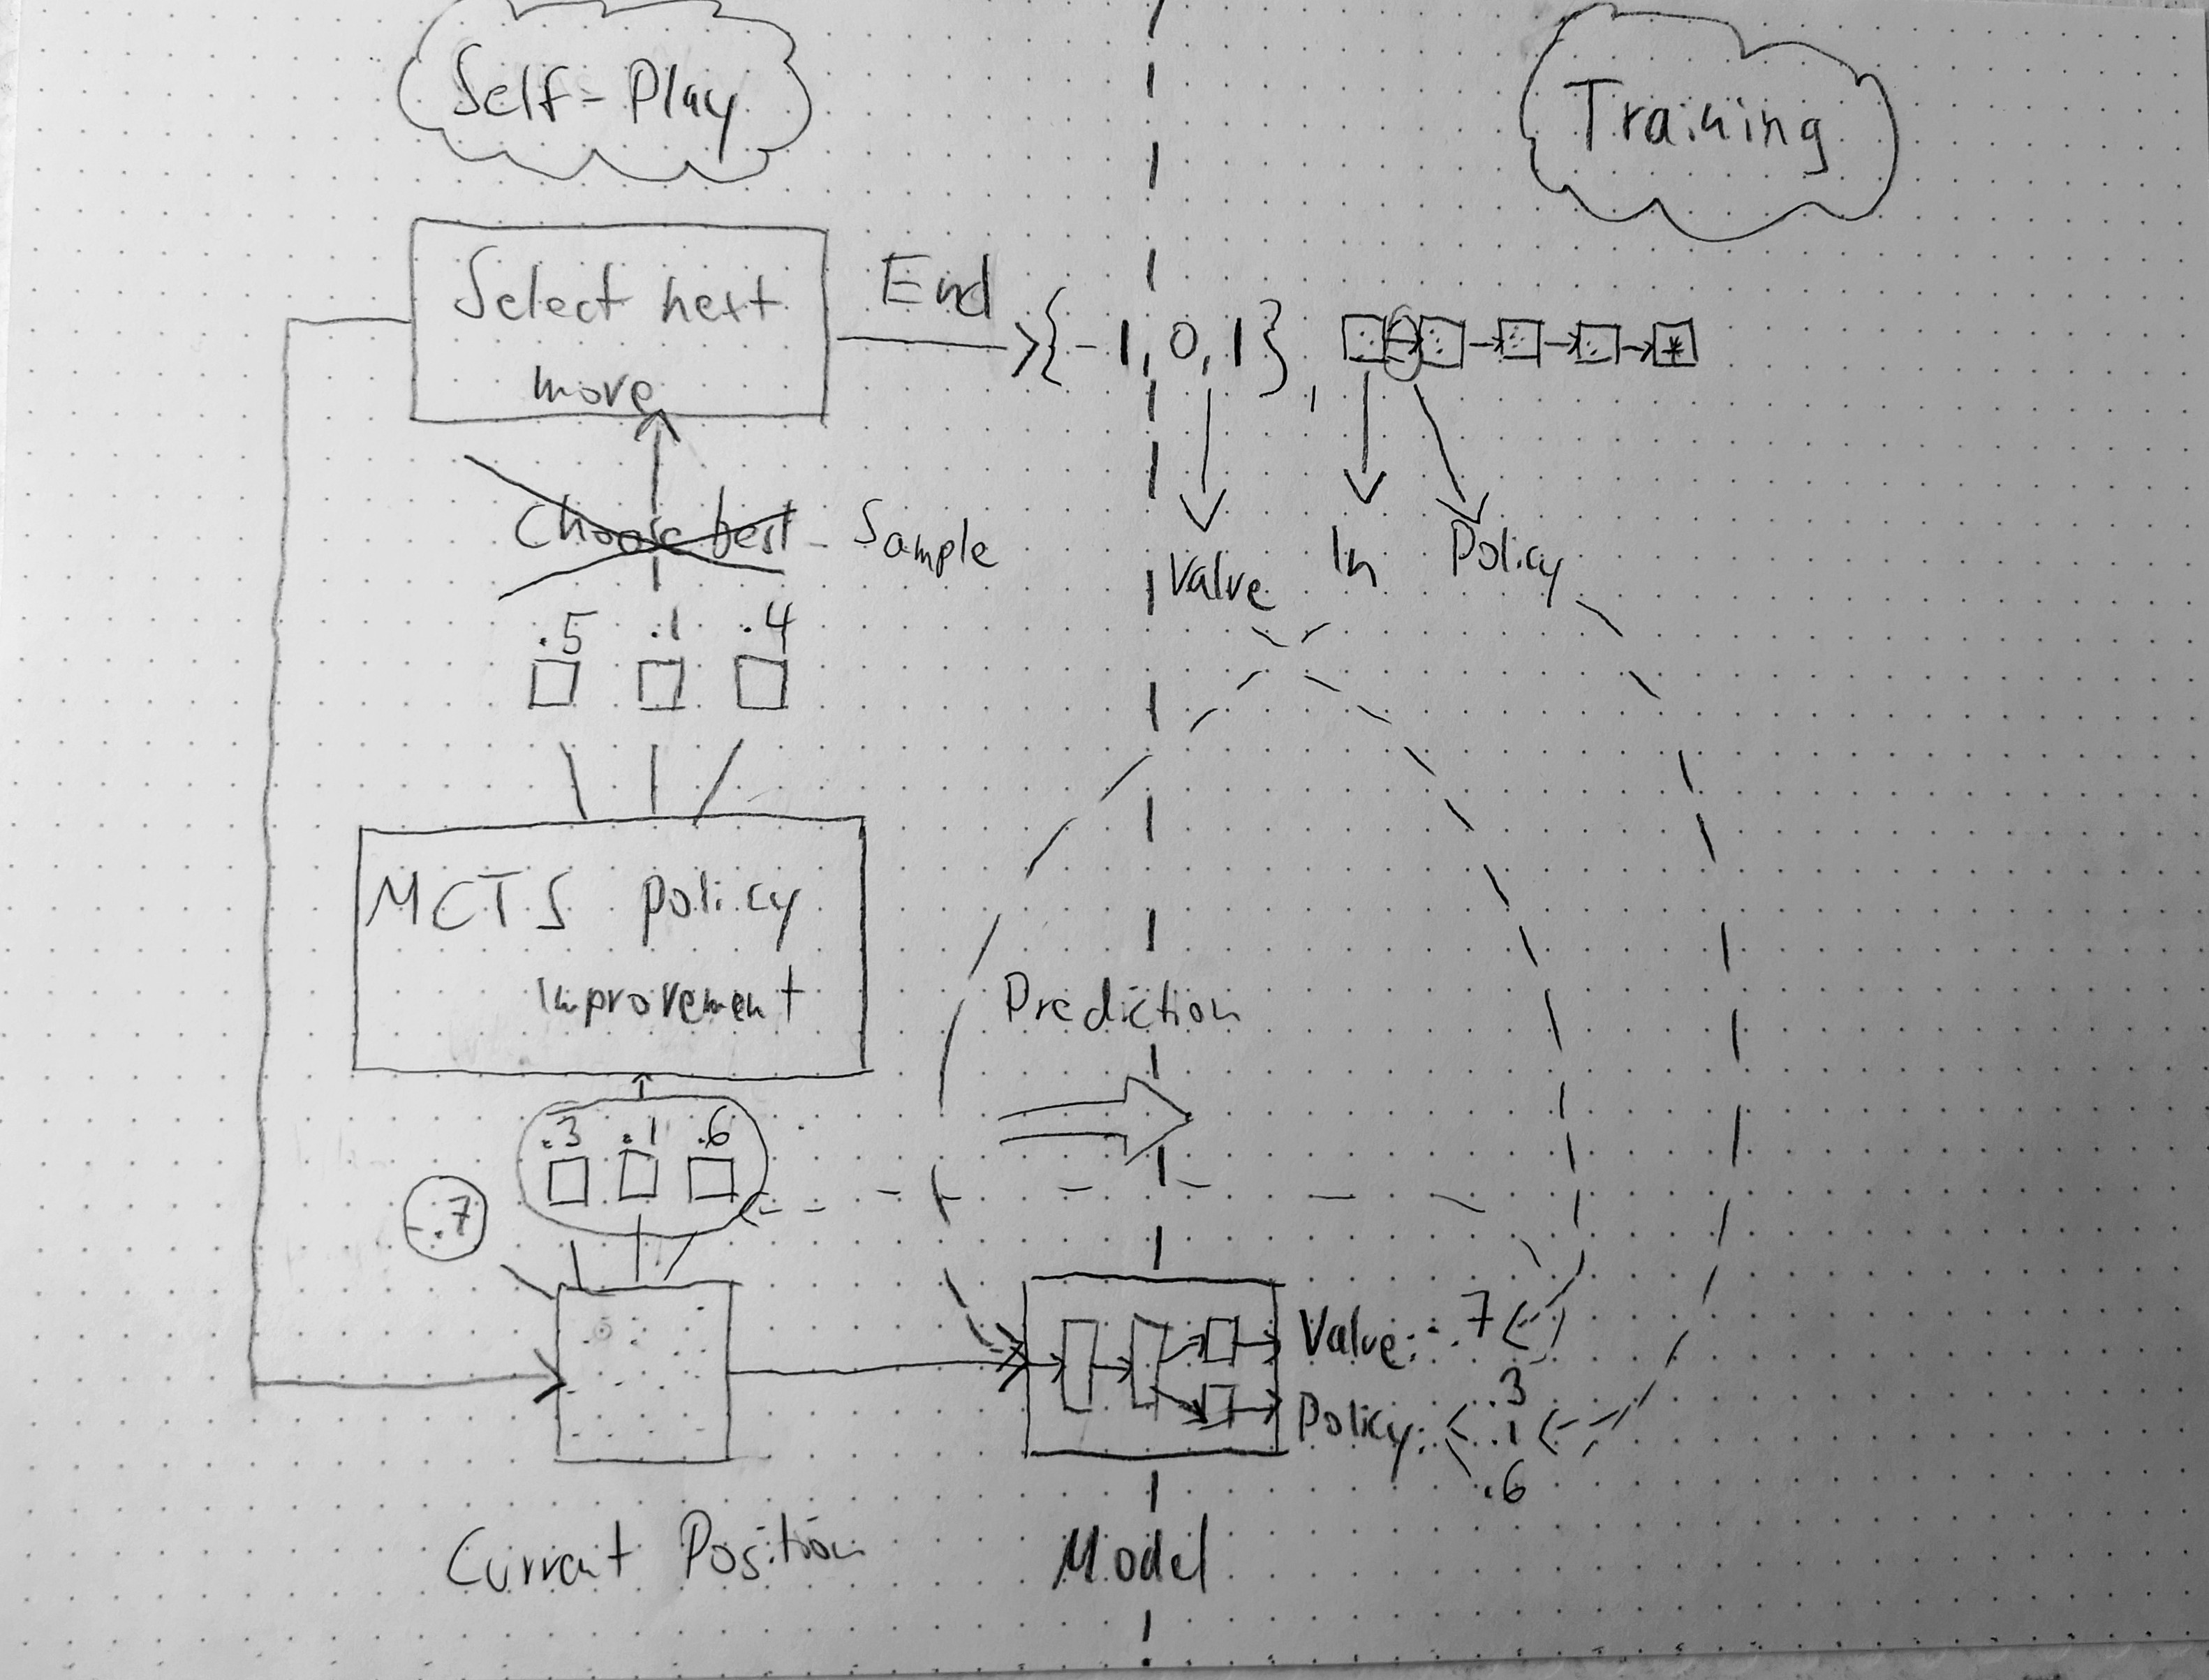 Self-Play
Training
Select next
move
End
{-1, 0, 1},
Choose best
Sample
Value
In
Policy
.5 .1 .4
MCTS policy
Improvement
Prediction
.3 .1 .6
-.7
Value: -.7
Policy: .3
.1
.6
Current Position
Model